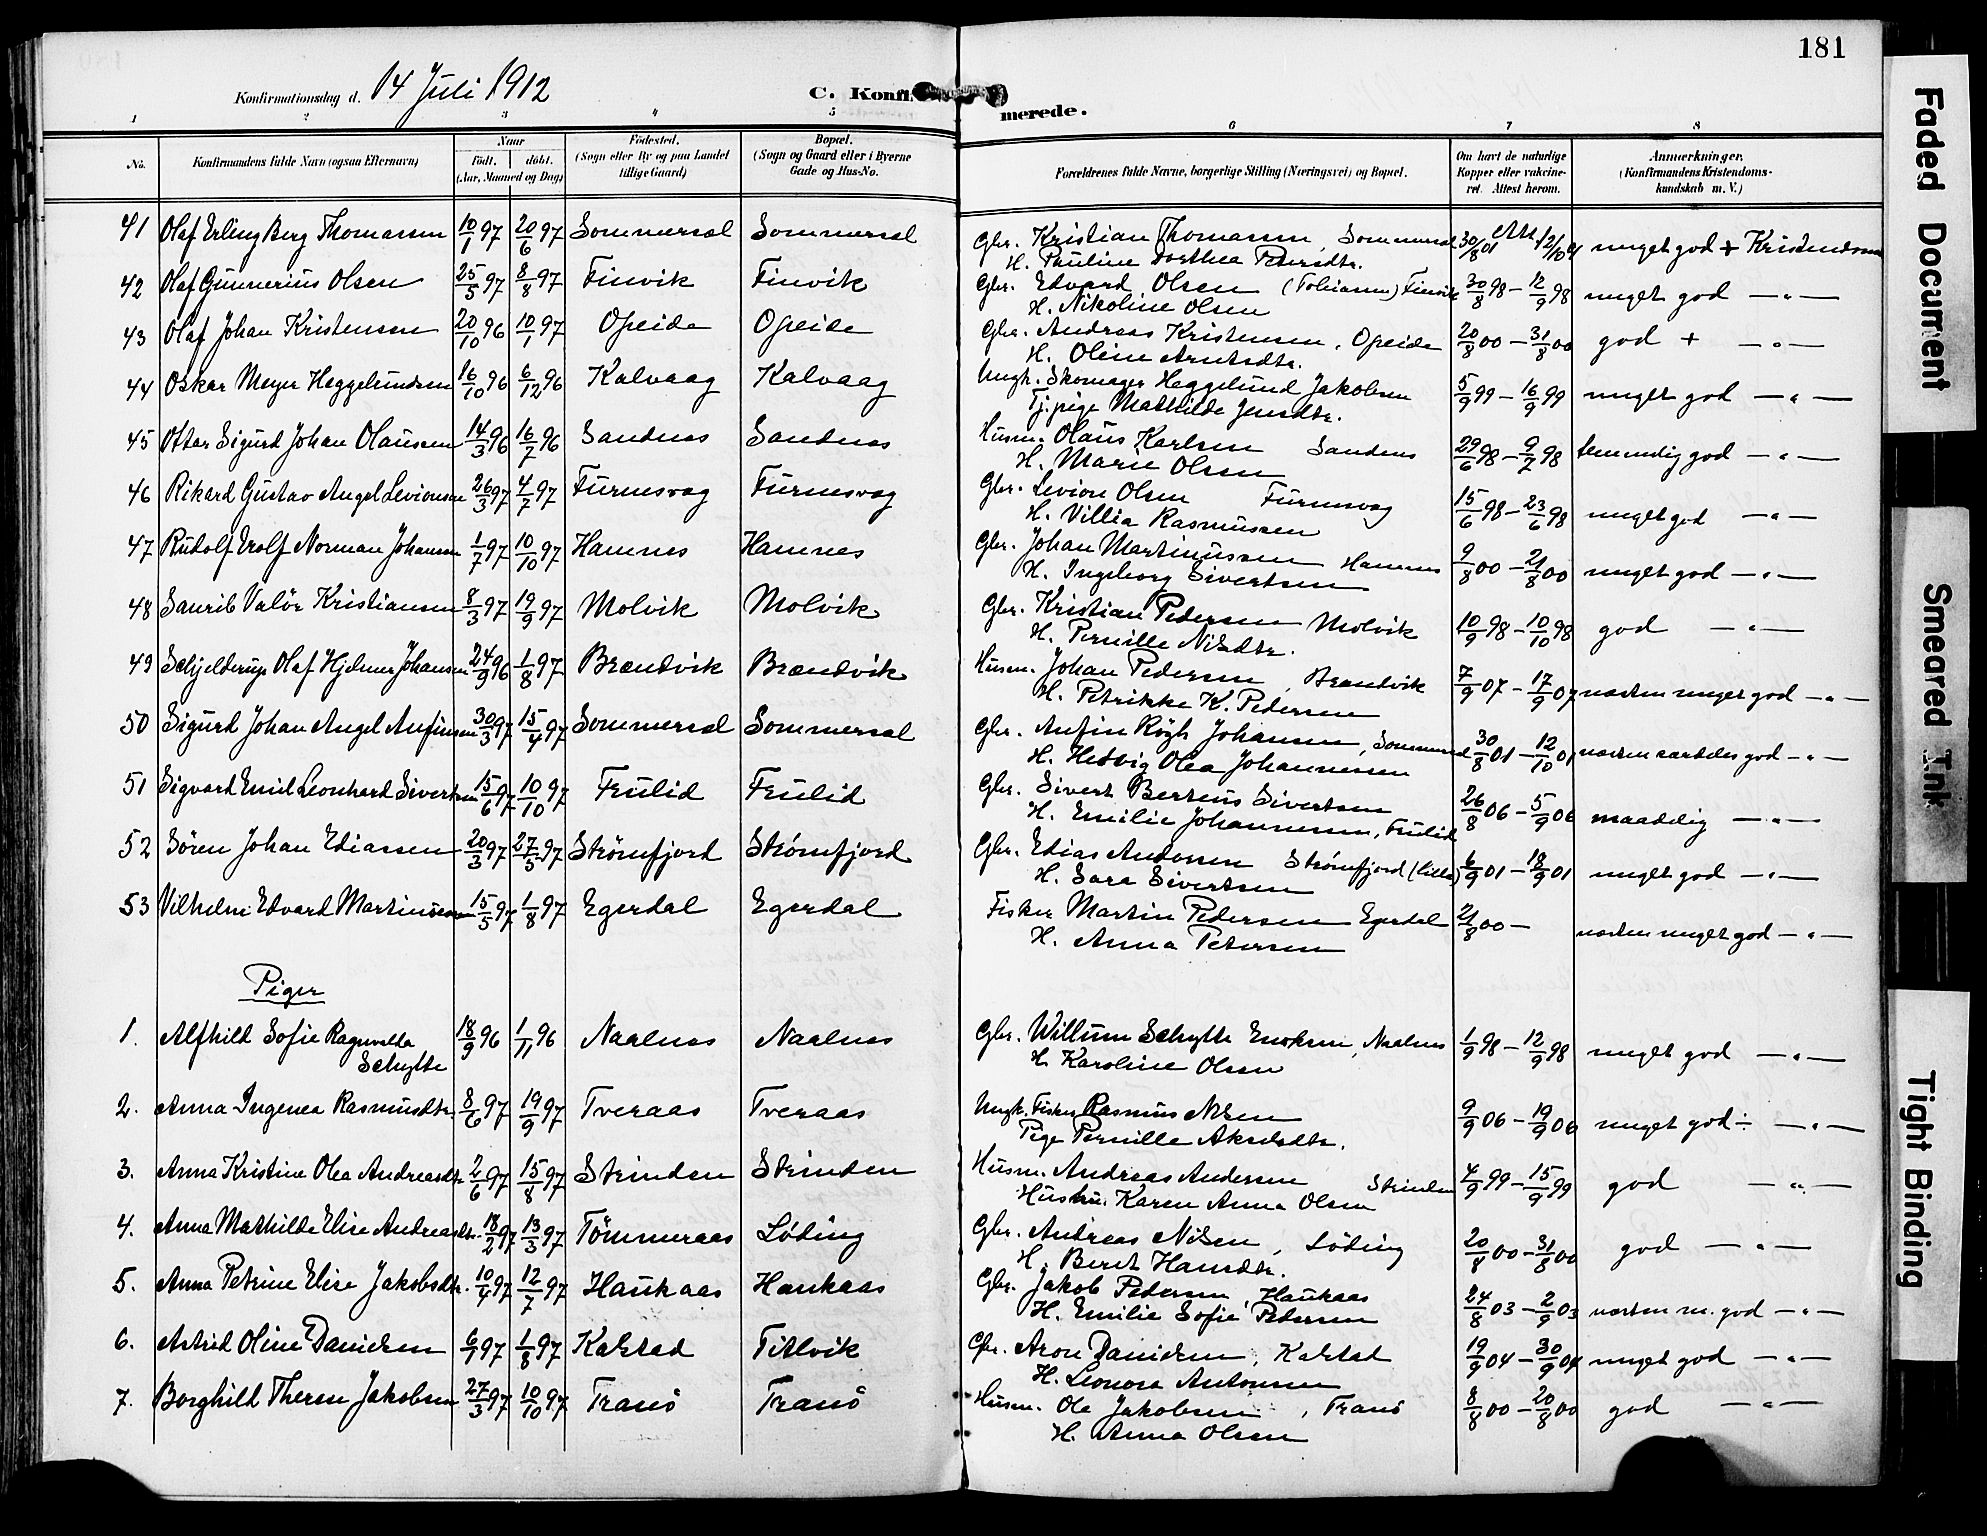 181
Konfirmationsdag d. 14 Juli 1912
C. Konfirmerede.
1 2 3 4 5 6 7 8
No. Konfirmandens fulde Navn (ogsaa Efternavn) Naar født. døbt. (Aar, Maaned og Dag) Fødested. (Sogn eller By og paa Landet tillige Gaard) Bopæl. (Sogn og Gaard eller i Byerne Gade og Hus-No. Forældrenes fulde Navne, borgerlige Stilling (Næringsvei) og Bopæl. Om havt de naturlige Kopper eller vakcineret. Attest herom. Anmærkninger. (Konfirmandens Kristendomskundskab m. V.)
41 Olaf Erling Berg Thomassen 10/1 97 20/6 97 Sommersel Sommersel Gbr. Kristian Thomassen, Sommersel 30/8 01 Att. 12/10 04 meget god + Kristendom
H. Pauline Dorthea Pedersdtr.
42 Olaf Gunnerius Olsen 25/5 97 8/8 97 Finvik Finvik Gbr. Edvard Olsen (Tobiassen) Finvik 30/8 98 – 12/9 98 meget god – " –
H. Nikoline Olsen
43 Olaf Johan Kristensen 20/10 96 10/1 97 Opeide Opeide Gbr. Andreas Kristensen, Opeide 20/8 00 – 31/8 00 god + – " –
H. Oline Arntsdtr.
44 Oskar Meyer Heggelundsen 16/10 96 6/12 96 Kalvaag Kalvaag Ungk. Skomager Heggelund Jakobsen 5/9 99 – 16/9 99 meget god – " –
Tj. pige Mathilde Jensdtr.
45 Ottar Sigurd Johan Olaussen 14/3 96 16/7 96 Sandnes Sandnes Husm. Olaus Karlsen Sandnes 29/6 98 – 9/7 98 temmelig god – " –
H. Marie Olsen
46 Rikard Gustav Angel Levionsen 26/3 97 4/7 97 Furnesvag Furnesvag Gbr. Levion Olsen Furnesvag 15/6 98 – 23/6 98 meget god – " –
H. Villia Rasmussen
47 Rudolf Erolf Norman Johansen 1/7 97 10/10 97 Hamnes Hamnes Gbr. Johan Martinussen Hamnes 9/8 00 – 21/8 00 meget god – " –
H. Ingeborg Sivertsen
48 Saurib Valör Kristiansen 8/3 97 19/9 97 Molvik Molvik Gbr. Kristian Pedersen Molvik 10/9 98 – 10/10 98 god – " –
H. Pernille Nilsdtr.
49 Schjelderup Olaf Hjelmer Johansen 24/9 96 1/8 97 Brændvik Brændvik Husm. Johan Pedersen, Brændvik 7/9 07 – 17/9 07 næsten meget god – " –
H. Petrikke K. Pedersen
50 Sigurd Johan Angel Anfinsen 30/3 97 15/4 97 Sommersel Sommersel Gbr. Anfin Røgh Johansen, Sommersel 30/8 01 – 12/10 01 næsten særdeles god – " –
H. Hedvig Olea Johannesen
51 Sigvard Emil Leonhard Sivertsen 15/6 97 10/10 97 Frulid Frulid Gbr. Sivert Berteus Sivertsen 26/8 06 – 5/9 06 maadelig – " –
H. Emilie Johannesen, Frulid
52 Sören Johan Ediassen 20/3 97 27/5 97 Strømfjord Strømfjord Gbr. Edias Andorsen Strømfjord (Lille) 6/9 01 – 18/9 01 meget god – " –
H. Sara Sivertsen
53 Vilhelm Edvard Martinussen 15/5 97 1/8 97 Egerdal Egerdal Fisker Martin Pedersen Egerdal 21/8 00 – næsten meget god – " –
H. Anna Petersen
Piger
1. Alfhild Sofie Ragnvalda Schytte 18/9 96 1/11 96 Naalnes Naalnes Gbr. Willum Schytte Enoksen, Naalnes 1/9 98 – 12/9 98 meget god – " –
H. Karoline Olsen
2. Anna Ingenea Rasmusdtr. 8/6 97 19/9 97 Tveraas Tveraas Ungk. Fisker Rasmus Nilsen 9/9 06 – 19/9 06 meget god ÷ – " –
Pige Pernille Akselsdtr.
3. Anna Kristine Olea Andreasdtr 2/6 97 15/8 97 Strinden Strinden Husm. Andreas Andersen Strinden 4/9 99 – 15/9 99 god – " –
Hustru. Karen Anna Olsen
4. Anna Mathilde Elise Andreasdtr. 18/2 97 13/3 97 Tömmeraas Løding Gbr. Andreas Nilsen, Løding 20/8 00 – 31/8 00 god – " –
H. Beret Hansdtr.
5. Anna Petrine Elise Jakobsdtr. 10/4 97 12/7 97 Haukaas Haukaas Gbr. Jakob Pedersen, Haukaas 24/8 03 – 2/9 03 næsten m. god – " –
H. Emilie Sofie Pedersen
6. Astrid Oline Danielsen 6/1 97 1/8 97 Kalstad Titlvik Gbr. Aron Danielsen, Kalstad 19/9 04 – 30/9 04 meget god – " –
H. Leonora Antonsen
7. Borghild Therese Jakobsen 27/3 97 10/10 97 Tranö Tranö Husm. Ole Jakobsen, Tranö 8/8 00 – 20/8 00 god – " –
H. Anna Olsen
Faded Document
Smeared Ink
Tight Binding